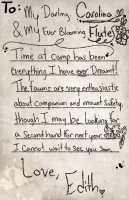 To: My Darling, Carolina
& My Ever Blooming Flute
Time at Camp has been
everything I have ever Dreamt!
The fawns are very enthusiastic
about Companion and mount Safety,
though I may be looking for
a Second hand for next year.
I Cannot wait to see you Soon.
Love,
Edith